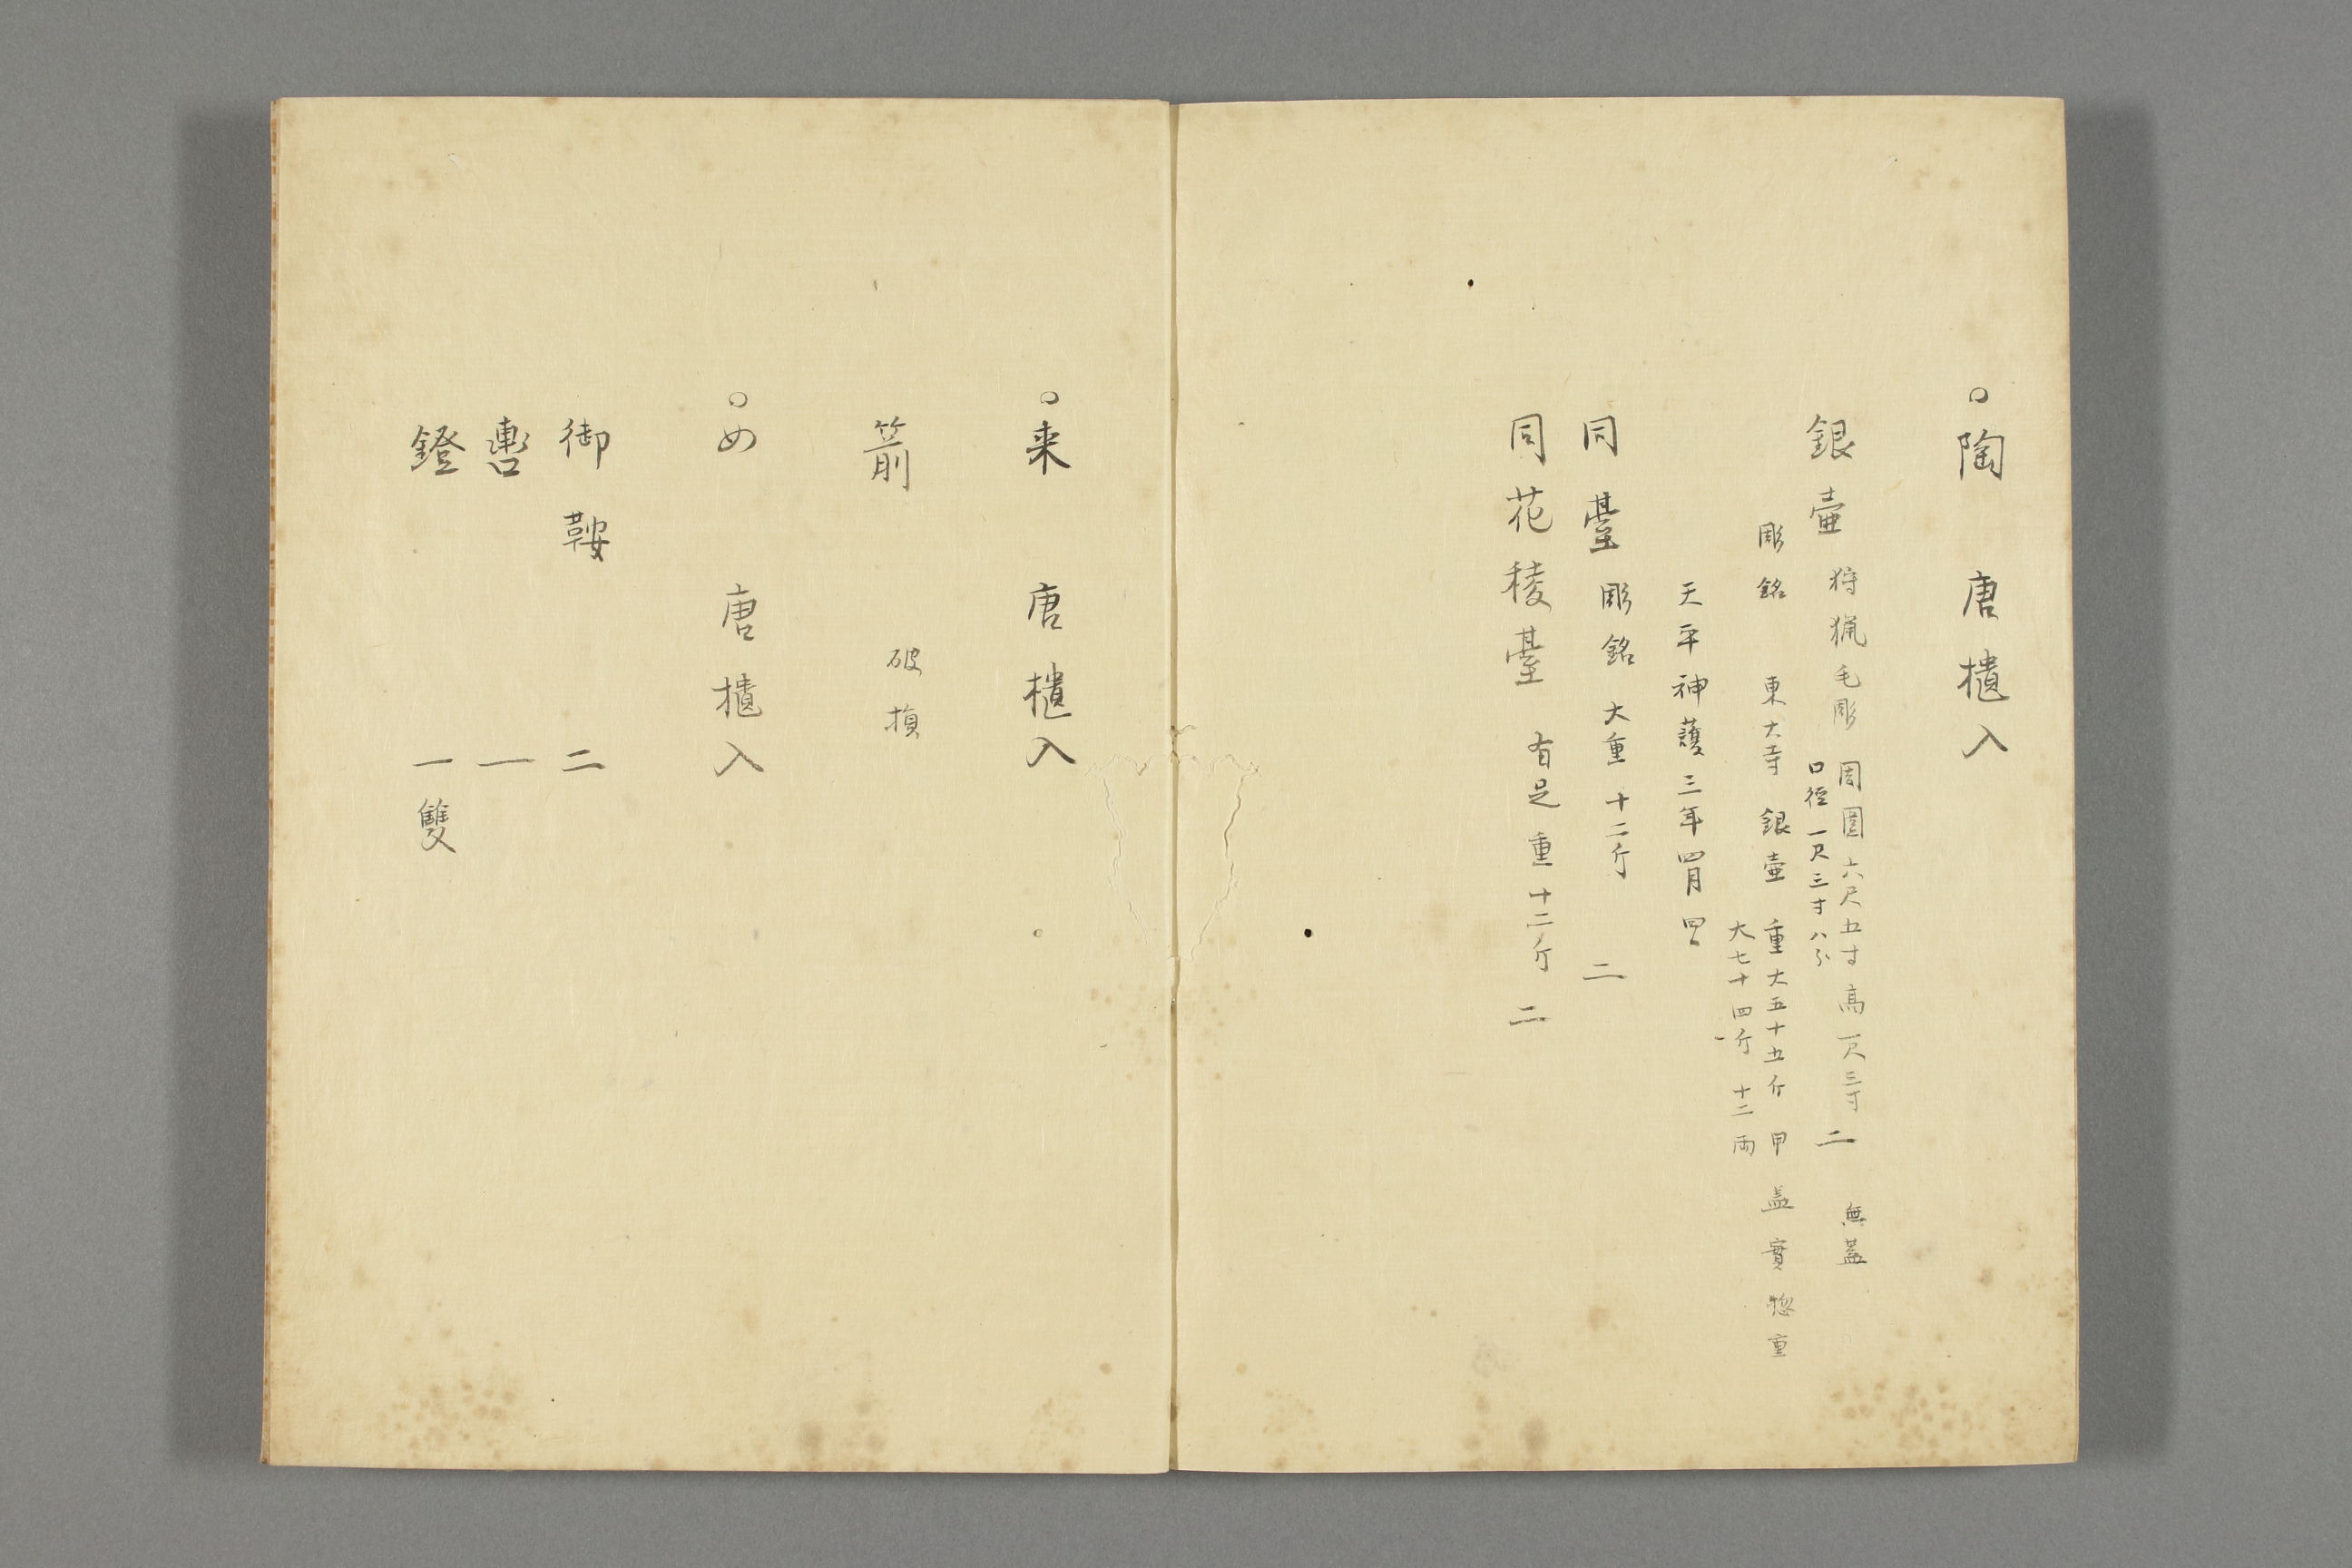 ○陶　唐櫃入
銀壷 狩猟毛彫 周圍六尺五寸 高一尺三寸 二 無蓋
口徑一尺三寸八分
彫銘 東大寺 銀壷 重大五十五斤 甲 盖實惣重
大七十四斤 十二両
天平神護三年四月四
同臺 彫銘 大重十二斤 二
同花稜臺 有足 重十二斤 二
○来　唐櫃入
箭 破損
○め　唐櫃入
御鞍 二
轡 一
鐙 一雙